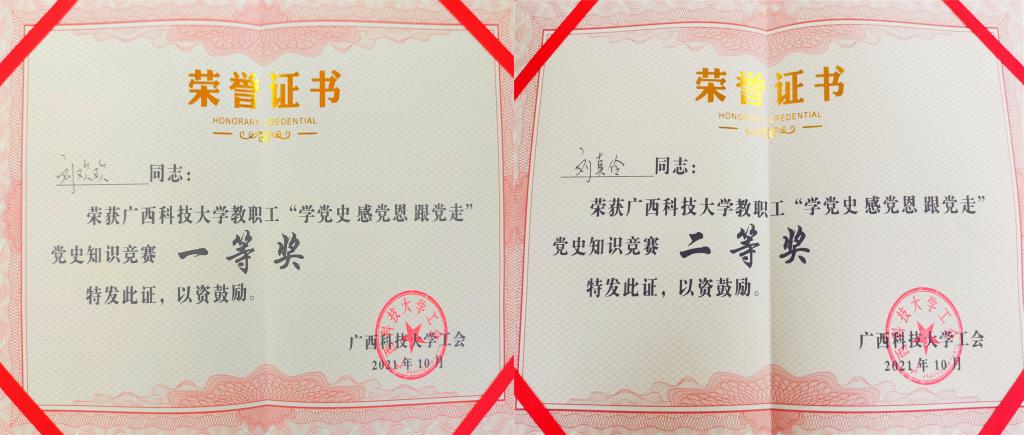 荣誉证书
HONORARY CREDENTIAL
刘欢欢 同志：
荣获广西科技大学教职工“学党史 感党恩 跟党走”
党史知识竞赛 一等奖
特发此证，以资鼓励。
广西科技大学工会
2021年10月
荣誉证书
HONORARY CREDENTIAL
刘真伶 同志：
荣获广西科技大学教职工“学党史 感党恩 跟党走”
党史知识竞赛 二等奖
特发此证，以资鼓励。
广西科技大学工会
2021年10月